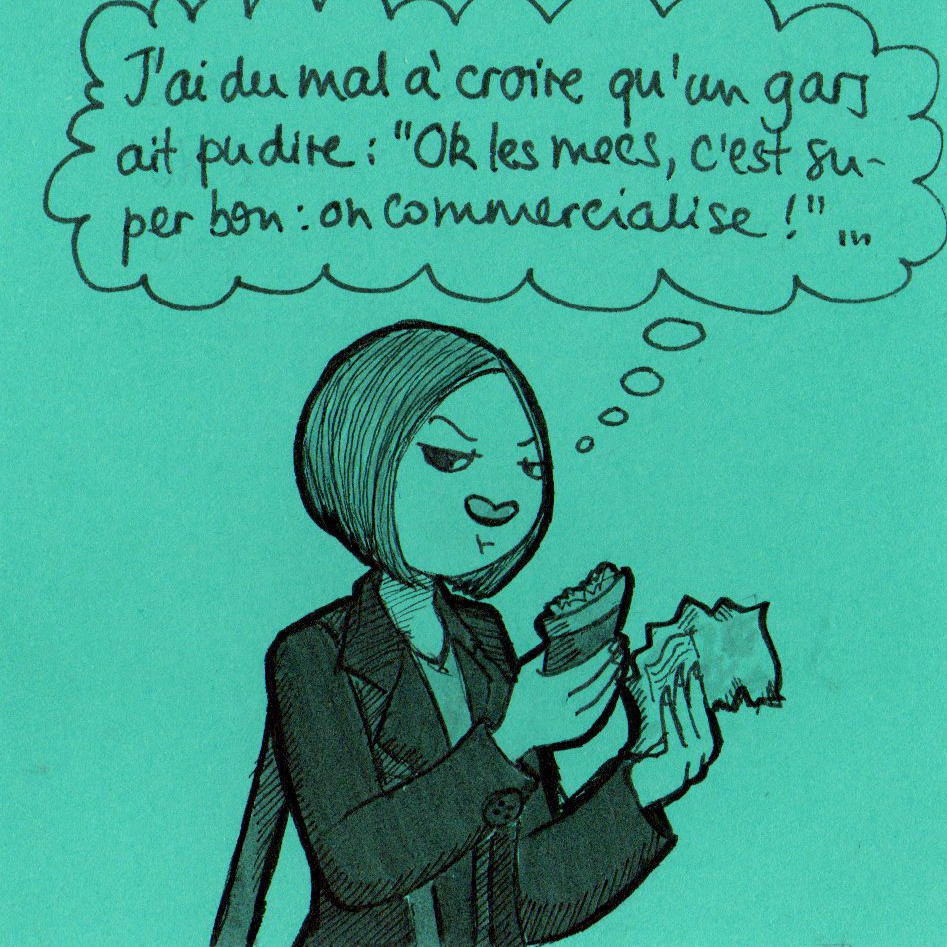 J'ai du mal à croire qu'un gars
ait pu dire : "Ok les mecs, c'est su-
per bon : on commercialise !"...